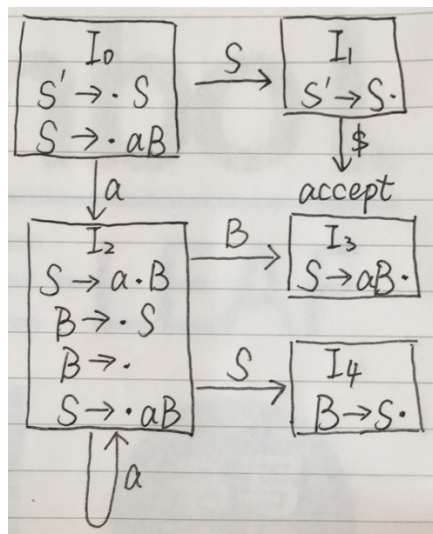 I0
S' → · S
S → · aB
S
I1
S' → S·
$
accept
a
I2
S → a · B
B → · S
B → ·
S → · aB
B
I3
S → aB ·
S
I4
B → S·
a